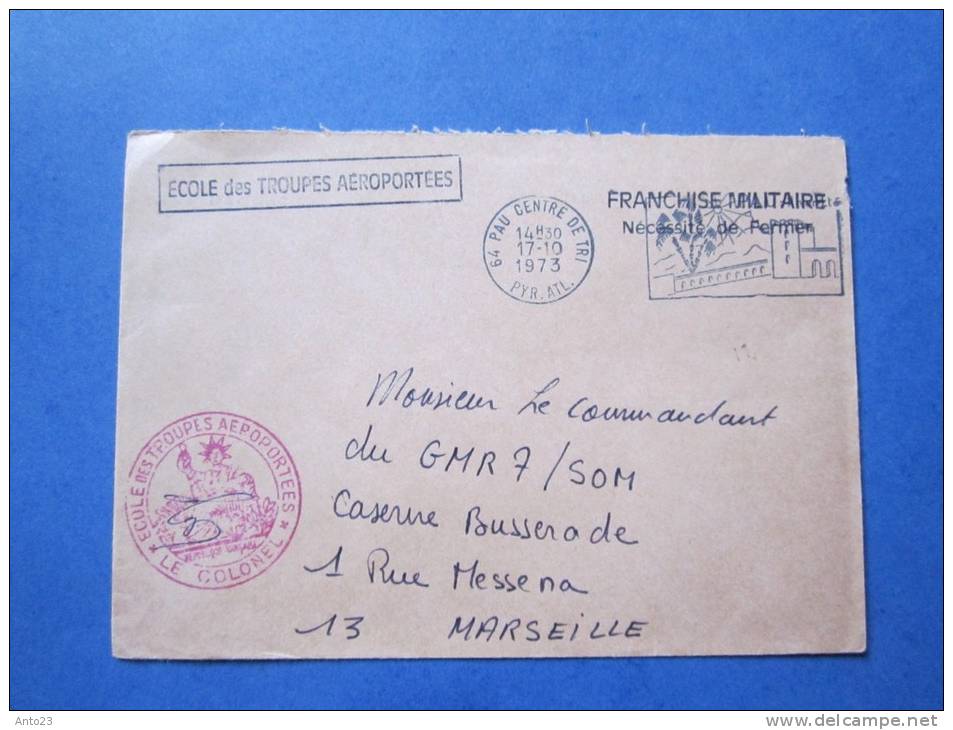 ECOLE des TROUPES AÉROPORTÉES
64 PAU CENTRE DE TRI
14H30
17-10
1973
PYR. ATL.
FRANCHISE MILITAIRE
Nécessité de Fermer
Monsieur Le Commandant
du GMR 7/SOM
Caserne Busserade
1 Rue Messena
13 MARSEILLE
ECOLE DES TROUPES AEROPORTEES
LE COLONEL
Anto23
www.delcampe.net